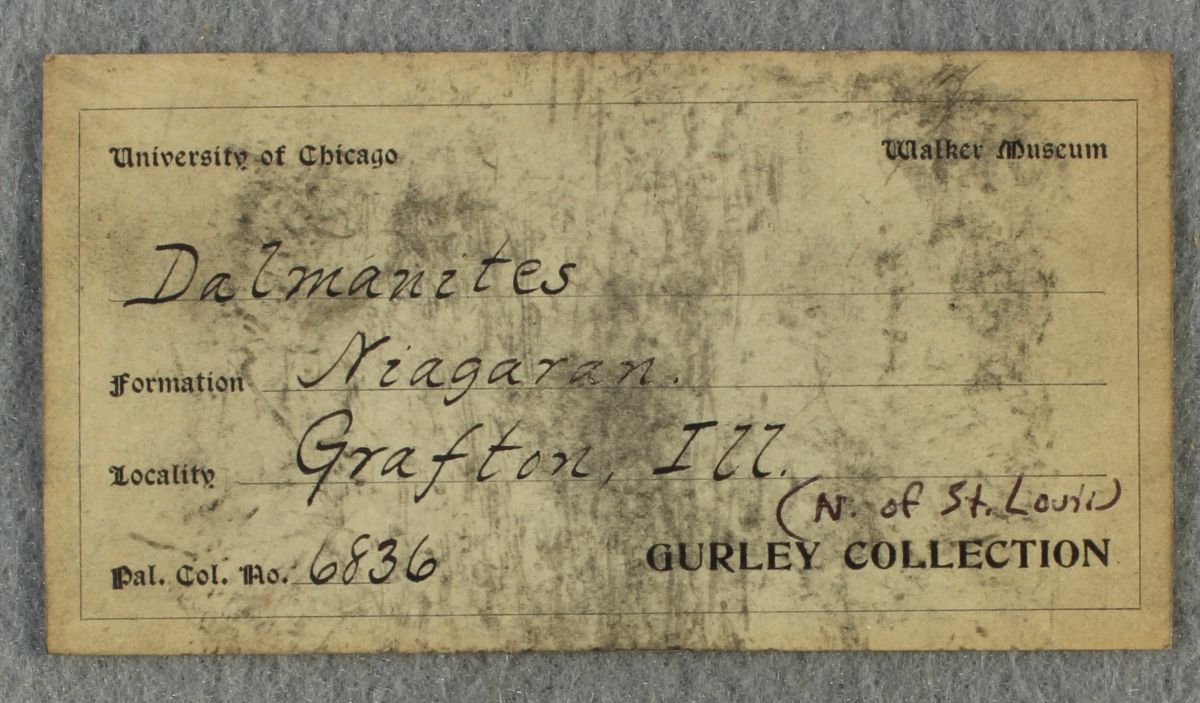 University of Chicago Walker Museum
Dalmanites
Formation Niagaran.
Locality Grafton, Ill.
(N. of St. Louis)
Pal. Col. No. 6836 GURLEY COLLECTION